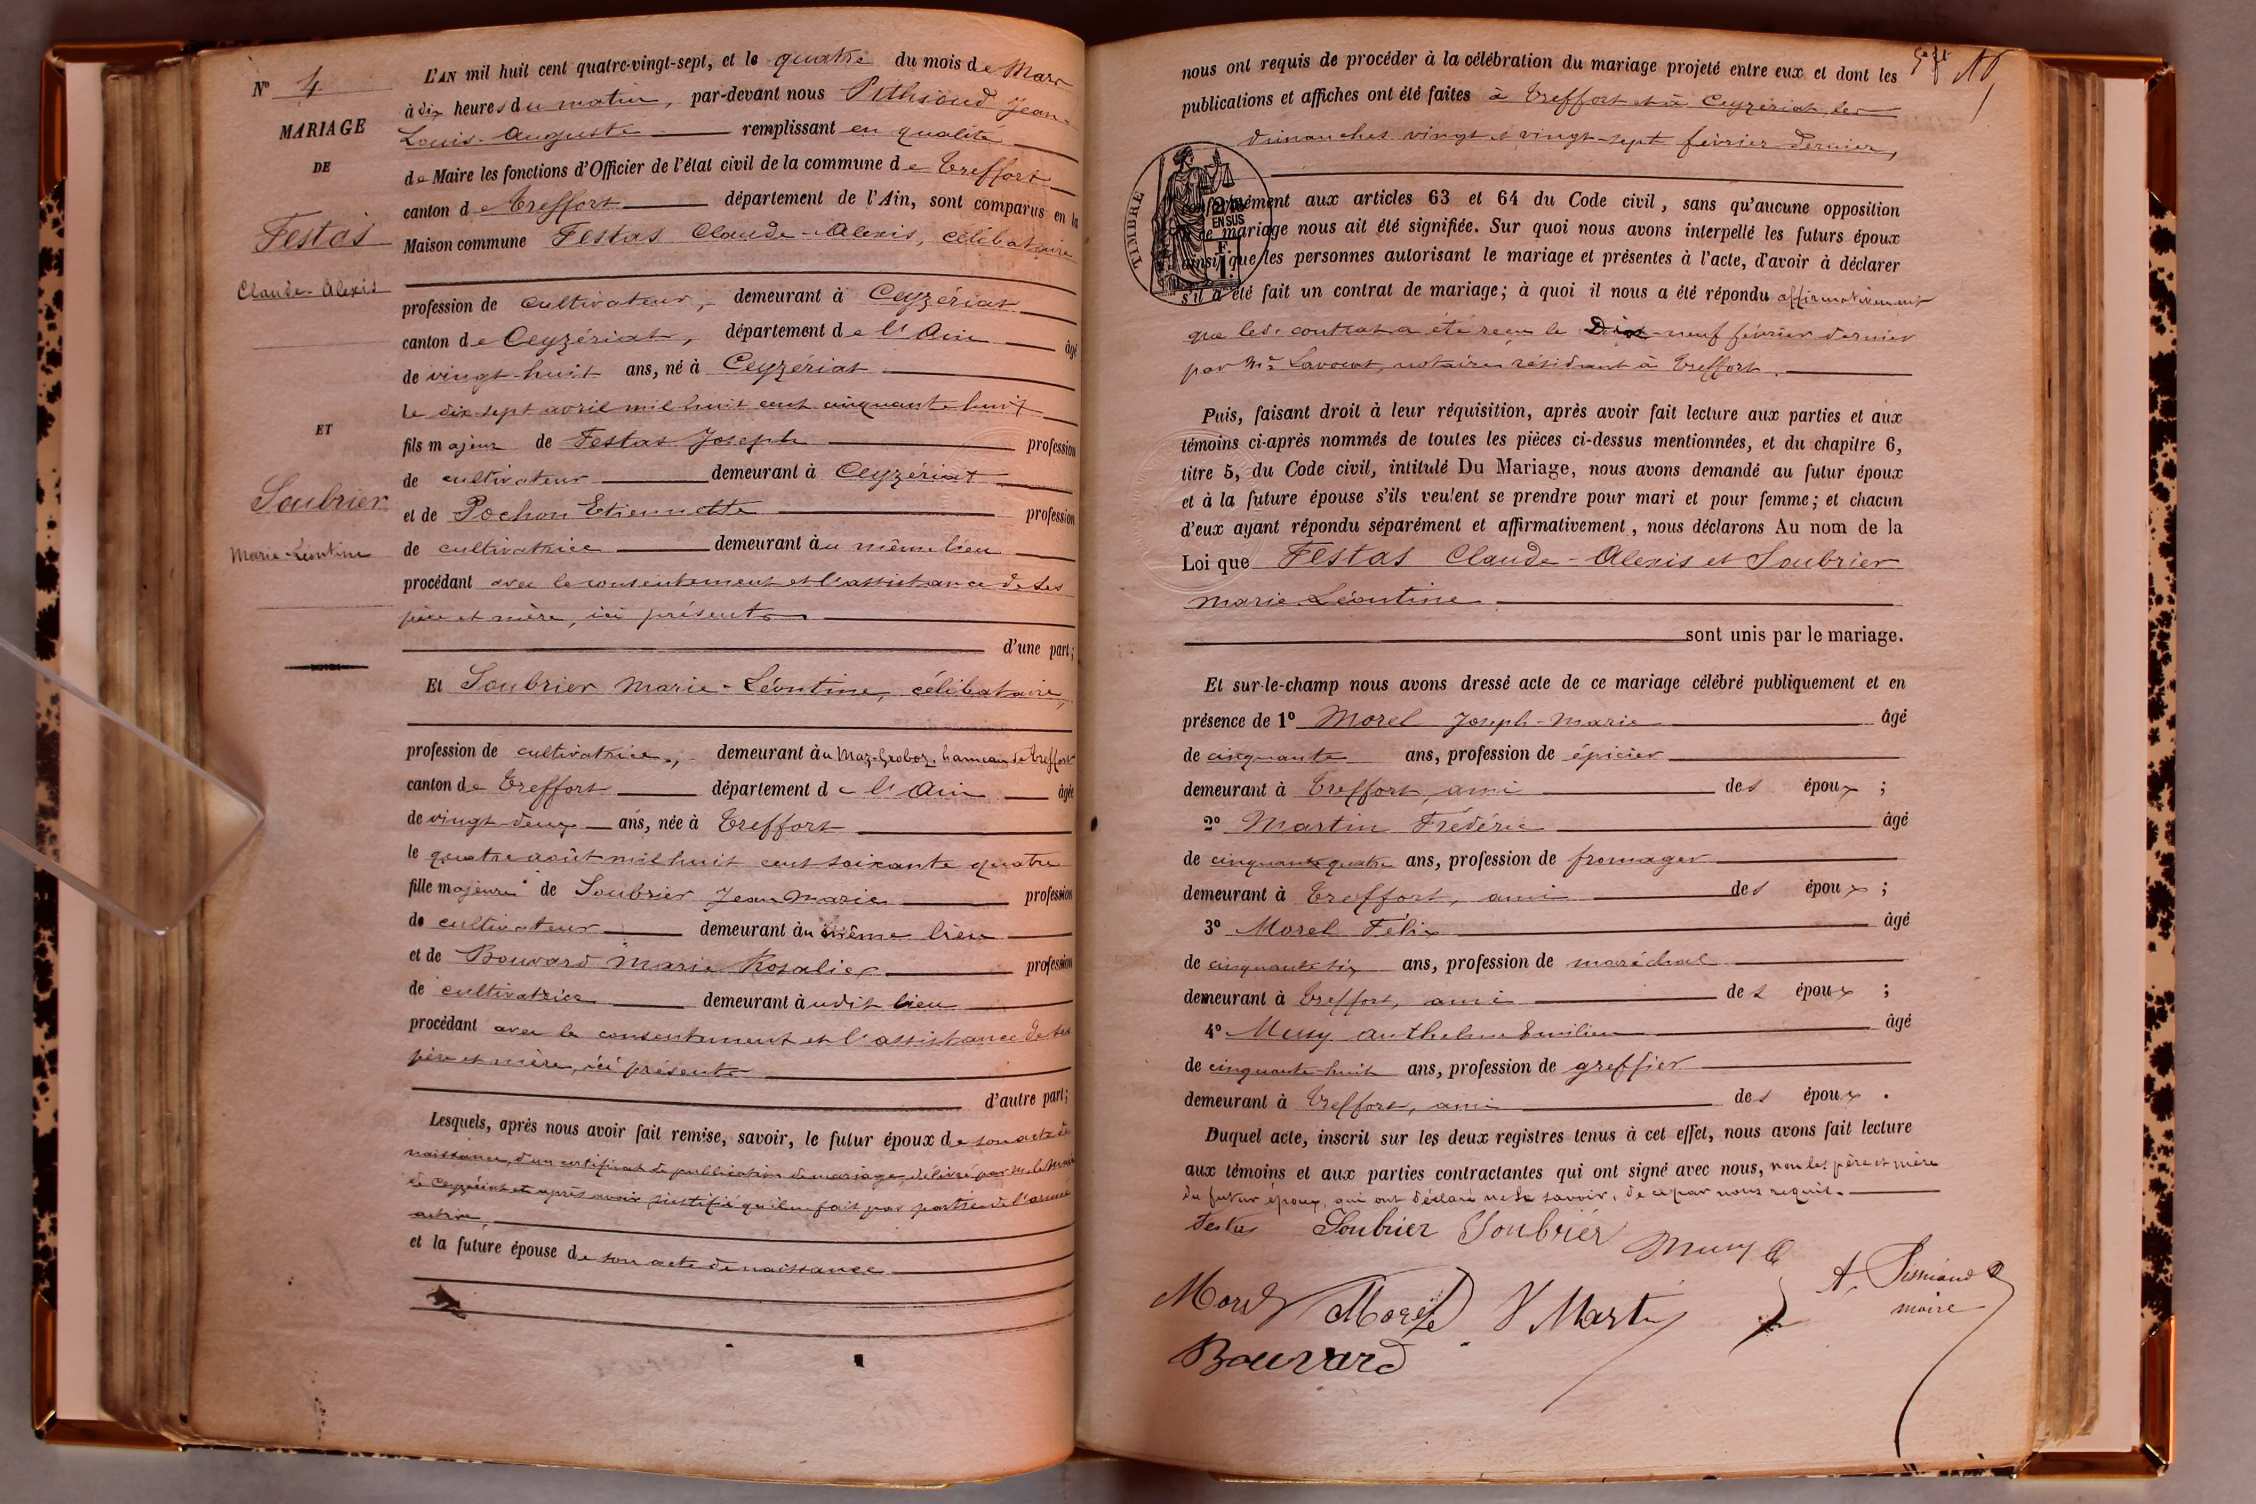 N° 4
MARIAGE
DE
Festas
Claude-Alexis
ET
Soubrier
Marie-Léontine
L'AN mil huit cent quatre-vingt-sept, et le quatre du mois de Mars
à dix heures du matin, par-devant nous Jean-
Louis-Auguste remplissant en qualité
de Maire les fonctions d'Officier de l'état civil de la commune de Treffort
canton de Treffort département de l'Ain, sont comparus en la
Maison commune Festas Claude-Alexis, célibataire
profession de cultivateur, demeurant à Ceyzériat
canton de Ceyzériat, département de l'Ain âgé
de vingt-huit ans, né à Ceyzériat
le dix-sept avril mil huit cent cinquante huit
fils majeur de Festas Joseph profession
de cultivateur demeurant à Ceyzériat
et de Pochon Etiennette profession
de cultivatrice demeurant au même lieu
procédant avec le consentement et l'assistance de ses
père et mère, ici présents
d'une part;
Et Soubrier Marie-Léontine, célibataire,
profession de cultivatrice, demeurant au Maz-Groboz, hameau de Treffort
canton de Treffort département de l'Ain âgée
de vingt-deux ans, née à Treffort
le quatre août mil huit cent soixante quatre
fille majeure de Soubrier Jean Marie profession
de cultivateur demeurant au même lieu
et de Bouvard Marie Rosalie profession
de cultivatrice demeurant audit lieu
procédant avec le consentement et l'assistance de ses
père et mère, ici présents
d'autre part;
Lesquels, après nous avoir fait remise, savoir, le futur époux de son acte de
naissance, d'un certificat de publication de mariage, délivré par M. le Maire
de Ceyzériat et après avoir justifié qu'il ne fait pas partie de l'armée
active,
et la future épouse de son acte de naissance
nous ont requis de procéder à la célébration du mariage projeté entre eux et dont les
publications et affiches ont été faites à Treffort et à Ceyzériat, les
dimanches vingt et vingt-sept février dernier,
TIMBRE
2/10 EN SUS
F. 1.
conformément aux articles 63 et 64 du Code civil, sans qu'aucune opposition
de mariage nous ait été signifiée. Sur quoi nous avons interpellé les futurs époux
ainsi que les personnes autorisant le mariage et présentes à l'acte, d'avoir à déclarer
s'il a été fait un contrat de mariage; à quoi il nous a été répondu affirmativement
que led. contrat a été reçu le Dix-neuf février dernier
par Me Lavocat, notaire résidant à Treffort.
Puis, faisant droit à leur réquisition, après avoir fait lecture aux parties et aux
témoins ci-après nommés de toutes les pièces ci-dessus mentionnées, et du chapitre 6,
titre 5, du Code civil, intitulé Du Mariage, nous avons demandé au futur époux
et à la future épouse s'ils veulent se prendre pour mari et pour femme; et chacun
d'eux ayant répondu séparément et affirmativement, nous déclarons Au nom de la
Loi que Festas Claude-Alexis et Soubrier
Marie Léontine
sont unis par le mariage.
Et sur-le-champ nous avons dressé acte de ce mariage célébré publiquement et en
présence de 1° Morel Joseph-Marie âgé
de cinquante ans, profession de épicier
demeurant à Treffort, ami des époux ;
2° Martin Frédéric âgé
de cinquante quatre ans, profession de fromager
demeurant à Treffort, ami des époux ;
3° Morel Félix âgé
de cinquante six ans, profession de maréchal
demeurant à Treffort, ami des époux ;
4° Muny Anthelme Emilien âgé
de cinquante-huit ans, profession de greffier
demeurant à Treffort, ami des époux .
Duquel acte, inscrit sur les deux registres tenus à cet effet, nous avons fait lecture
aux témoins et aux parties contractantes qui ont signé avec nous, non les père et mère
du futur époux, qui ont déclaré ne le savoir, de ce par nous requis.
Festas Soubrier Soubrier Muny
Morel Morel F Martin
maire
Bouvard